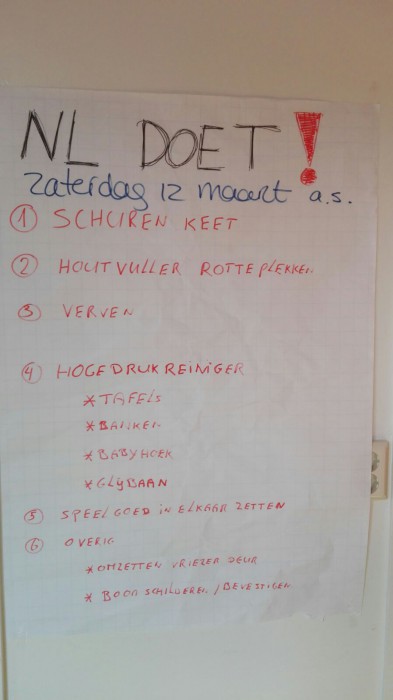 NL DOET!
zaterdag 12 maart a.s.
① SCHUREN KEET
② HOUTVULLER ROTTE PLEKKEN
③ VERVEN
④ HOGEDRUKREINIGER
* TAFELS
* BANKEN
* BABYHOEK
* GLIJBAAN
⑤ SPEELGOED IN ELKAAR ZETTEN
⑥ OVERIG
* OMZETTEN VRIEZER DEUR
* SCHILDEREN / BEVESTIGEN